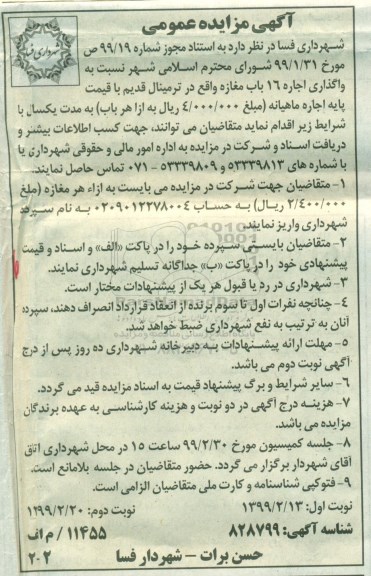 آگهی مزایده عمومی
شهرداری فسا
شـهرداری فسا در نظر دارد به استناد مجوز شماره ۹۹/۱۹ ص
مورخ ۹۹/۱/۳۱ شـورای محترم اسـلامی شـهر نسبت به
واگذاری اجاره ۱۶ باب مغازه واقع در ترمینال قدیم با قیمت
پایه اجاره ماهیانه (مبلغ ۴/۰۰۰/۰۰۰ ریال به ازا هر باب) به مدت یکسال با
شرایط زیر اقدام نماید متقاضیان می توانند، جهت کسب اطلاعات بیشتر و
دریافت اسـناد و شـرکت در مزایده به اداره امور مالی و حقوقی شهرداری یا
با شماره های ۵۳۳۳۹۸۱۳ و ۵۳۳۳۹۸۰۹ - ۰۷۱ تماس حاصل نمایند.
۱- متقاضیان جهت شـرکت در مزایده می بایست به ازاء هر مغازه (مبلغ
۲/۴۰۰/۰۰۰ ریـال) به حسـاب ۰۲۰۹۰۱۲۲۷۸۰۰۴ بـه نام سـپرده
شهرداری واریز نمایند.
۲- متقاضیان بایستی سپرده خود را در پاکت «الف» و اسـناد و قیمت
پیشنهادی خود را در پاکت «ب» جداگانه تسلیم شهرداری نمایند.
۳- شهرداری در رد یا قبول هر یک از پیشنهادات مختار است.
۴- چنانچه نفرات اول تا سوم برنده از انعقاد قرارداد انصراف دهند، سپرده
آنان به ترتیب به نفع شهرداری ضبط خواهد شد.
۵- مهلت ارائه پیشـنهادات بـه دبیرخانه شـهرداری ده روز پس از درج
آگهی نوبت دوم می باشد.
۶- سایر شرایط و برگ پیشنهاد قیمت به اسناد مزایده قید می گردد.
۷- هزینـه درج آگهی در دو نوبت و هزینه کارشناسـی به عهده برندگان
مزایده می باشد.
۸- جلسه کمیسیون مورخ ۹۹/۲/۳۰ ساعت ۱۵ در محل شهرداری اتاق
آقای شهردار برگزار می گردد. حضور متقاضیان در جلسه بلامانع است.
۹- فتوکپی شناسنامه و کارت ملی متقاضیان الزامی است.
نوبت اول: ۱۳۹۹/۲/۱۳ نوبت دوم: ۱۳۹۹/۲/۲۰
شناسه آگهی: ۸۲۸۷۹۹ ۱۱۴۵۵ / م الف
حسن برات - شهردار فسا ۲-۲